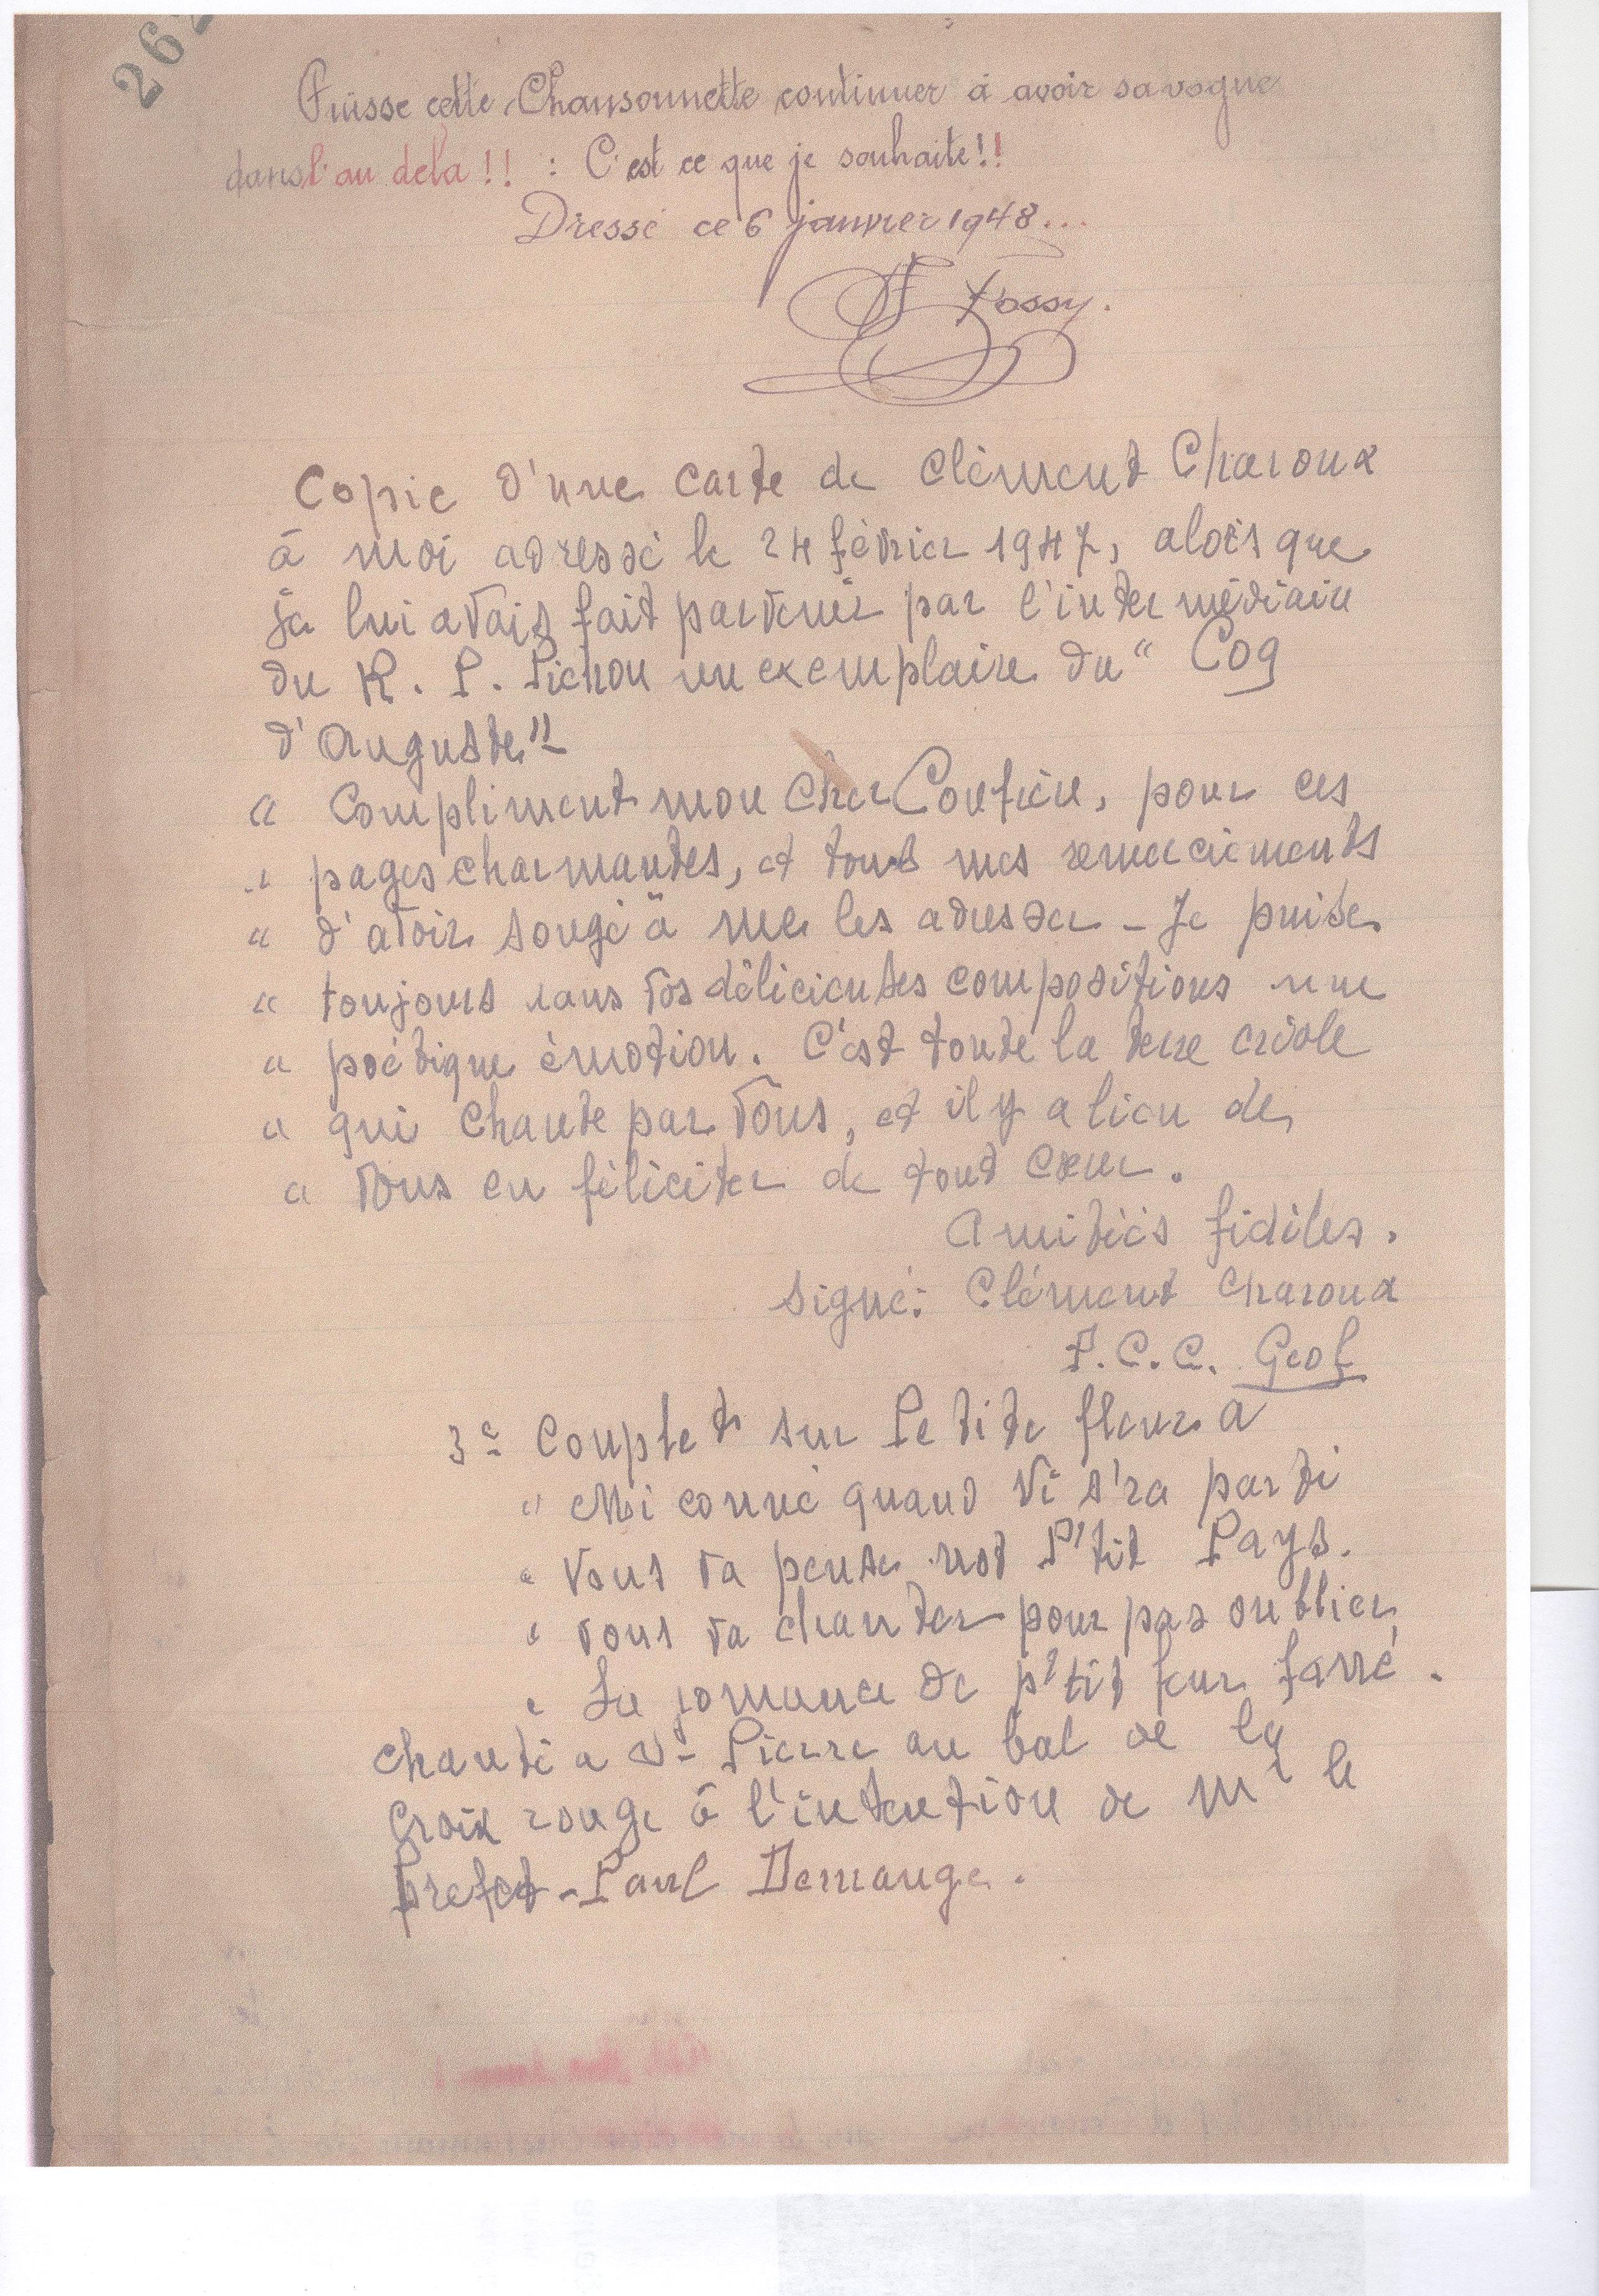 262
Puisse cette Chansonnette continuer à avoir sa vogue
dans l'au dela !! : C'est ce que je souhaite!!
Dressé ce 6 janvier 1948...
Fossy.
Copie d'une carte de Clément Charoux
à moi adressé le 24 février 1947, alors que
je lui avais fait parvenir par l'intermédiaire
du R. P. Pichon un exemplaire du " Coq
d'Auguste "
" Compliment mon Cher Confrère, pour ces
" pages charmantes, et tous mes remerciements
" d'avoir songé à me les adresser - Je puise
" toujours dans vos délicieuses compositions une
" poétique émotion. C'est toute la terre créole
" qui chante par vous, et il y a lieu de
" vous en féliciter de tout cœur.
Amitiés fidèles.
Signé: Clément Charoux
P.C.C. Geof
3e Couplet sur Petite fleur a
" Mi conné quand Vi s'ra parti
" Vous va penser not P'tit Pays.
" Vous va chanter pour pas oublier
" La romance de p'tit feur fanné.
chanté a St Pierre au bal de la
Croix rouge à l'intention de Mr le
Prefet - Paul Demange.